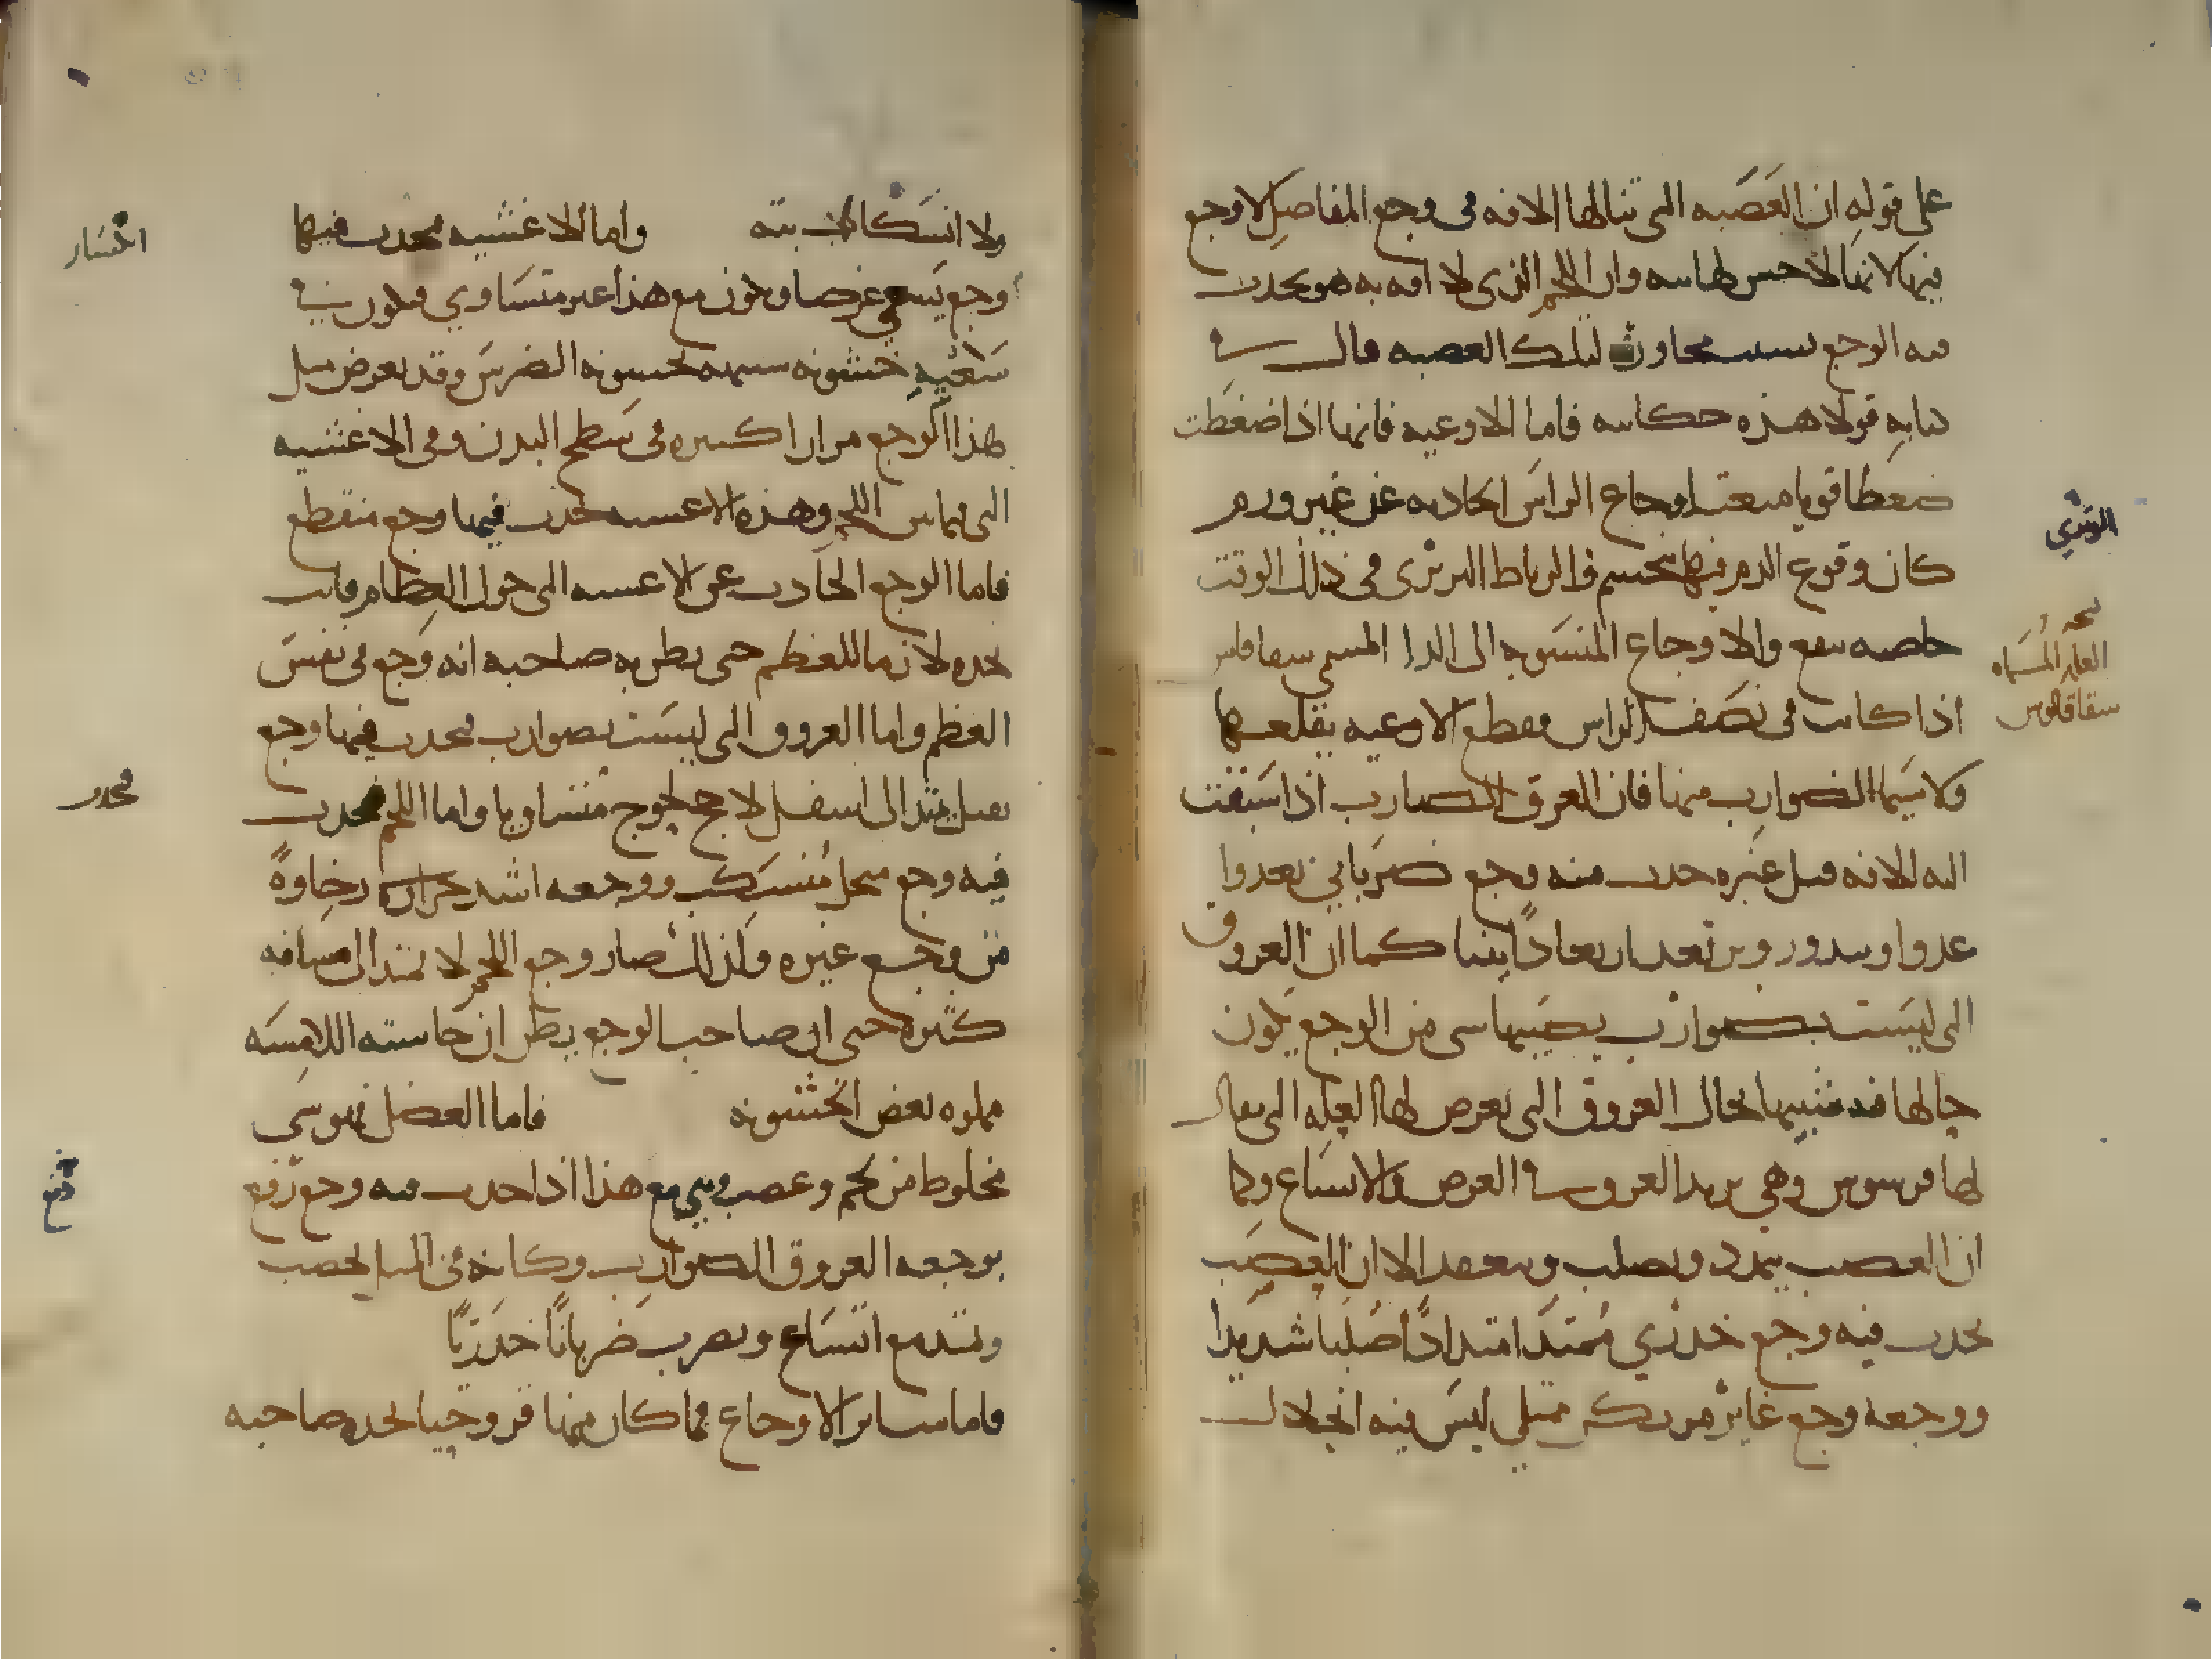 على قوله ان العصبه التى تنالها الافه فى وجع المفاصل لا وجع
فيها لانها لا حس لها بته وان اللحم الذى لا افه به هو يحدث
فيه الوجع بسبب مجاورته لتلك العصبه قال فى
كتابه قولا هذه حكايته فاما الاوعيه فانها اذا ضغطت
ضغطا قويا منعت اوجاع الراس الحادثه عن غير ورم
كان وقوع الدم فيها بجسم والرباط البرترى فى ذلك الوقت
خاصه ينفع والاوجاع المنسوبه الى الداء المسمى سفاقلس
اذا كانت فى نصف الراس فقطع الاوعيه يقلعها
ولا سيما الضوارب منها فان العرق الضارب اذا سبقت
اليه الافه قبل غيره حدث منه وجع ضربانى يعدوا
عدوا ويبدور ويرتعد ارتعادا بينا كما ان العروق
التى ليست بضوارب يصيبها شى من الوجع يكون
حالها فيه شبيها بحال العروق التى تعرض لها العله التى يقال
لها قرسوس وهى يريد العروق فى العرض والاتساع وكما
ان العصب يمدد ويصلب وينعقد الا ان العصب
يحدث فيه وجع خدرى ممتد امتدادا صلبا شديدا
ووجعه وجع غاير مرتك ممتلى ليس فيه انحلال
الوترى
نسخه
العله المسماه
سفاقلوس
ولا انسكاب بته واما الاغشيه فيحدث فيها
وجع يسعى عرضا ويكون مع هذا غير متساوى فيكون فى
سعيه خشونه شبيهه بخشونه الضرس وقد يعرض مثل
هذا الوجع مرارا كثيره فى سطح البدن وفى الاغشيه
التى تماس اللحم وهذه الاغشيه يحدث فيها وجع متقطع
فاما الوجع الحادث عن الاغشيه التى حول العظام فانت
تجده لازما للعظم حتى يظن به صاحبه انه وجع فى نفس
العظم واما العروق التى ليست بضوارب فيحدث فيها وجع
ثقيل يمتد الى اسفل لاحج لحوج متساويا واما اللحم فيحدث
فيه وجع منحل منسكب ووجعه اشد رخاوه
من وجع غيره ولذلك صار وجع اللحم لا يمتد الى مسافه
كثيره حتى ان صاحب الوجع يظن ان حاسته اللامسه
مملوه بعض الخشونه فاما العضل فهو شى
مخلوط من لحم وعصب وهى مع هذا اذا حدث فيه وجع رفع
بوجعه العروق الضوارب وكانه من المتلى لحصب
ويمتد مع اتساع ويضرب ضربانا خدريا
فاما ساير الاوجاع فما كان منها قروحيا يجده صاحبه
انتشار
فيحدث
دفع